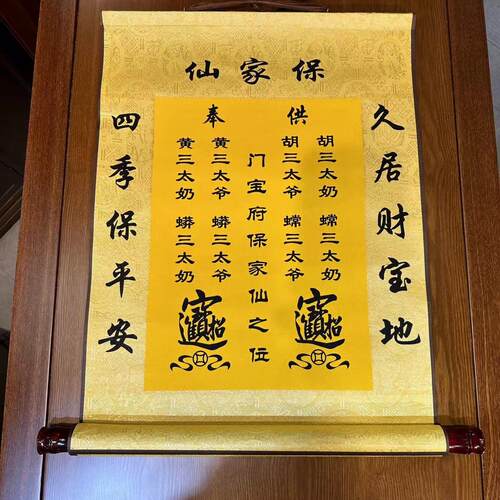 保家仙
久居财宝地
供奉
胡三太奶 蟐三太奶
胡三太爷 蟐三太爷
门宝府保家仙之位
黄三太爷 蟒三太爷
黄三太奶 蟒三太奶
招財進寶
招財進寶
四季保平安